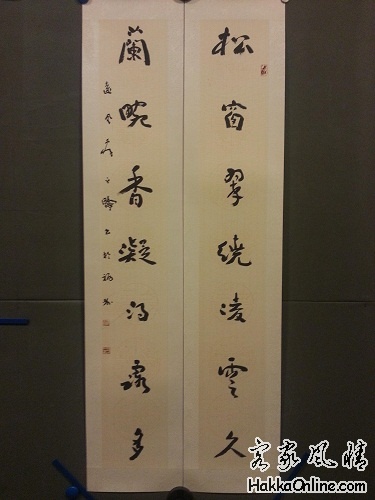 松窗翠繞凌雲久
蘭畹香凝浥露多
客家風情
HakkaOnline.com